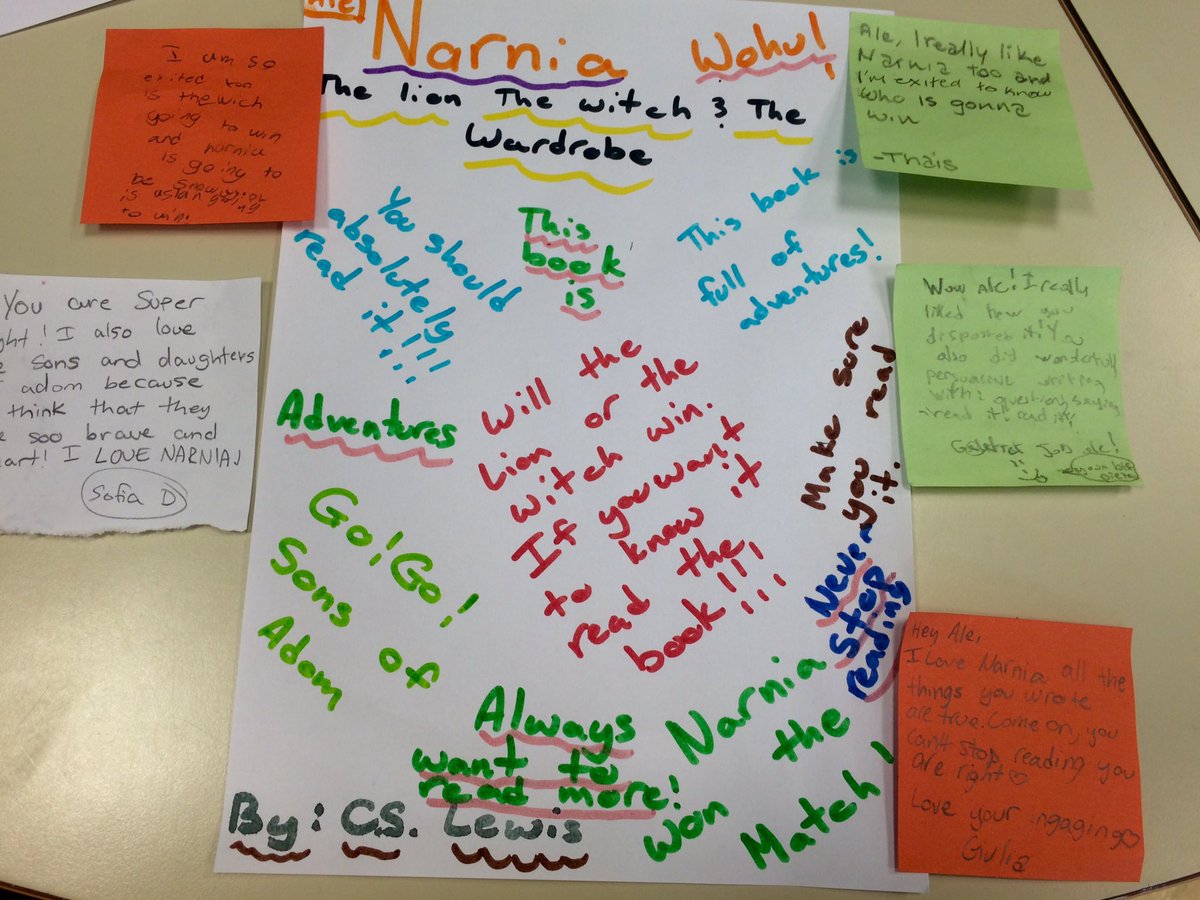 Ale
Narnia
Wohu!
The lion The witch & The
Wardrobe
You should
absolutely
read it!!!
This
book
is
This book is
full of
adventures!
Adventures
Will the
Lion or the
witch win.
If you want
to know it
read the
book!!!
Make sure
you read
it.
Never
stop
reading
Go! Go!
Sons of
Adam
Always
want to
read more!
Narnia
won the
Match!
By: C.S. Lewis
I am so
exited too
is the wich
going to win
and narnia
is going to
be
is aslan going
to win.
You are super
ght! I also love
sons and daughters
adom because
think that they
soo brave and
art! I LOVE NARNIA
Sofia D
Ale, I really like
Narnia too and
I'm exited to know
who is gonna
win
-Thais
Wow Ale! I really
liked how you
it! You
also did wonderfull
persuasive writing
with: question, saying
read it! and it!
job Ale!
Hey Ale,
I Love Narnia all the
things you wrote
are true. Come on, you
can't stop reading you
are right♡
Love your ingaging♡
Giulia